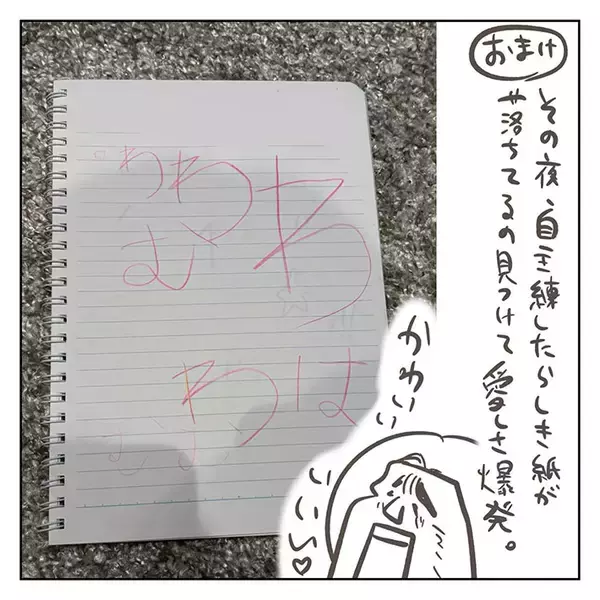 おまけ
その夜、自主練したらしき紙が
落ちてるの見つけて愛しさ爆発。
わわわ
む
わは
かわいい
いい〜♡